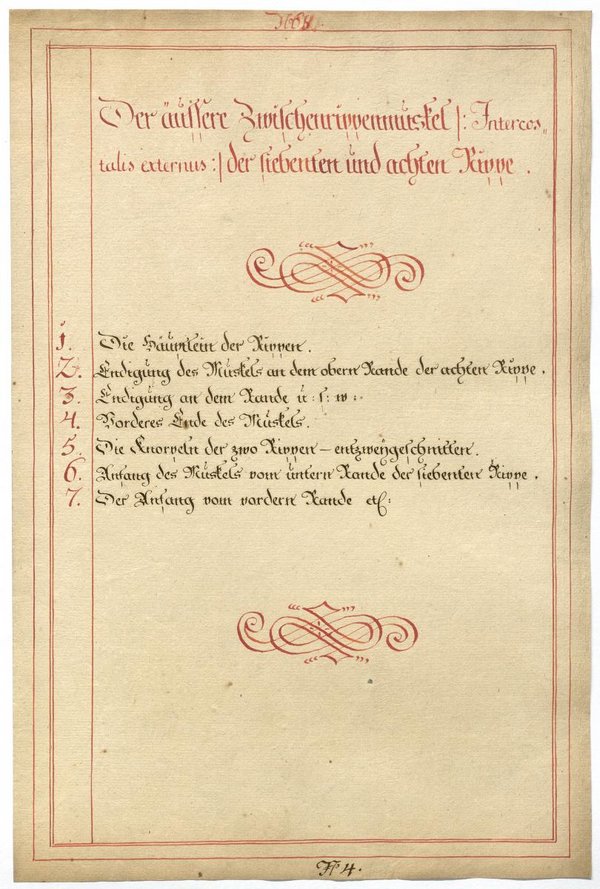 Der äussere Zwischenrippenmuskel /: Intercos„
talis externus :/ der siebenten und achten Rippe .
1. Die Häuptlein der Rippen .
2. Endigung des Muskels an dem obern Rande der achten Rippe .
3. Endigung an dem Rande u : s : w :
4. Vorderes Ende des Muskels .
5. Die Knorpeln der zwo Rippen – entzweygeschnitten .
6. Anfang des Muskels vom untern Rande der siebenten Rippe .
7. Der Anfang vom vordern Rande etc:
4 .